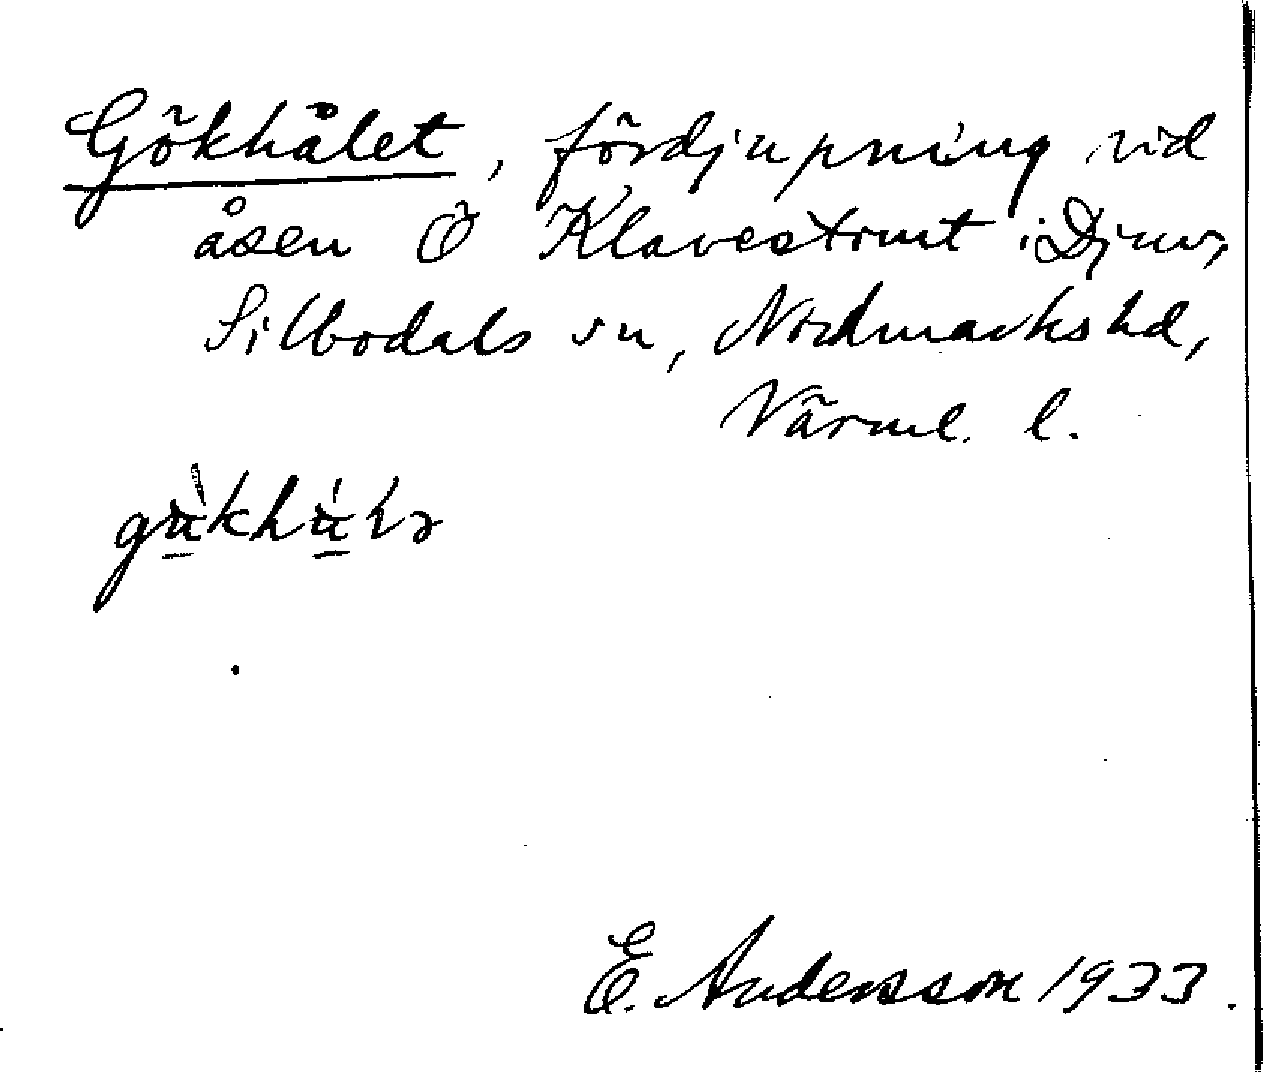 Gökhålet, fördjupning vid
åsen Ö Klavestomt i Djuv,
Silbodals sn, Nordmarks hd,
Värml. l.
E. Andersson 1933.